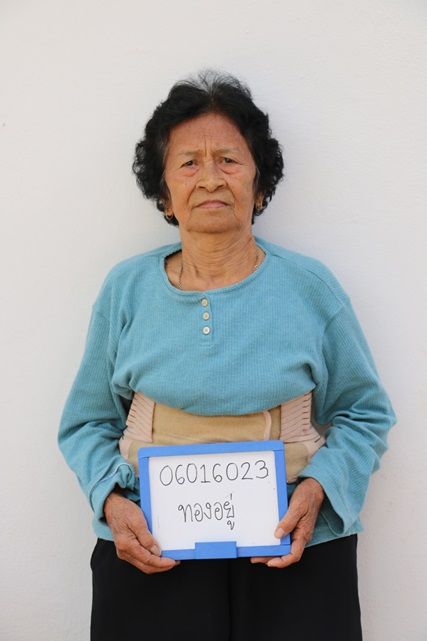 06016023
ทองอยู่